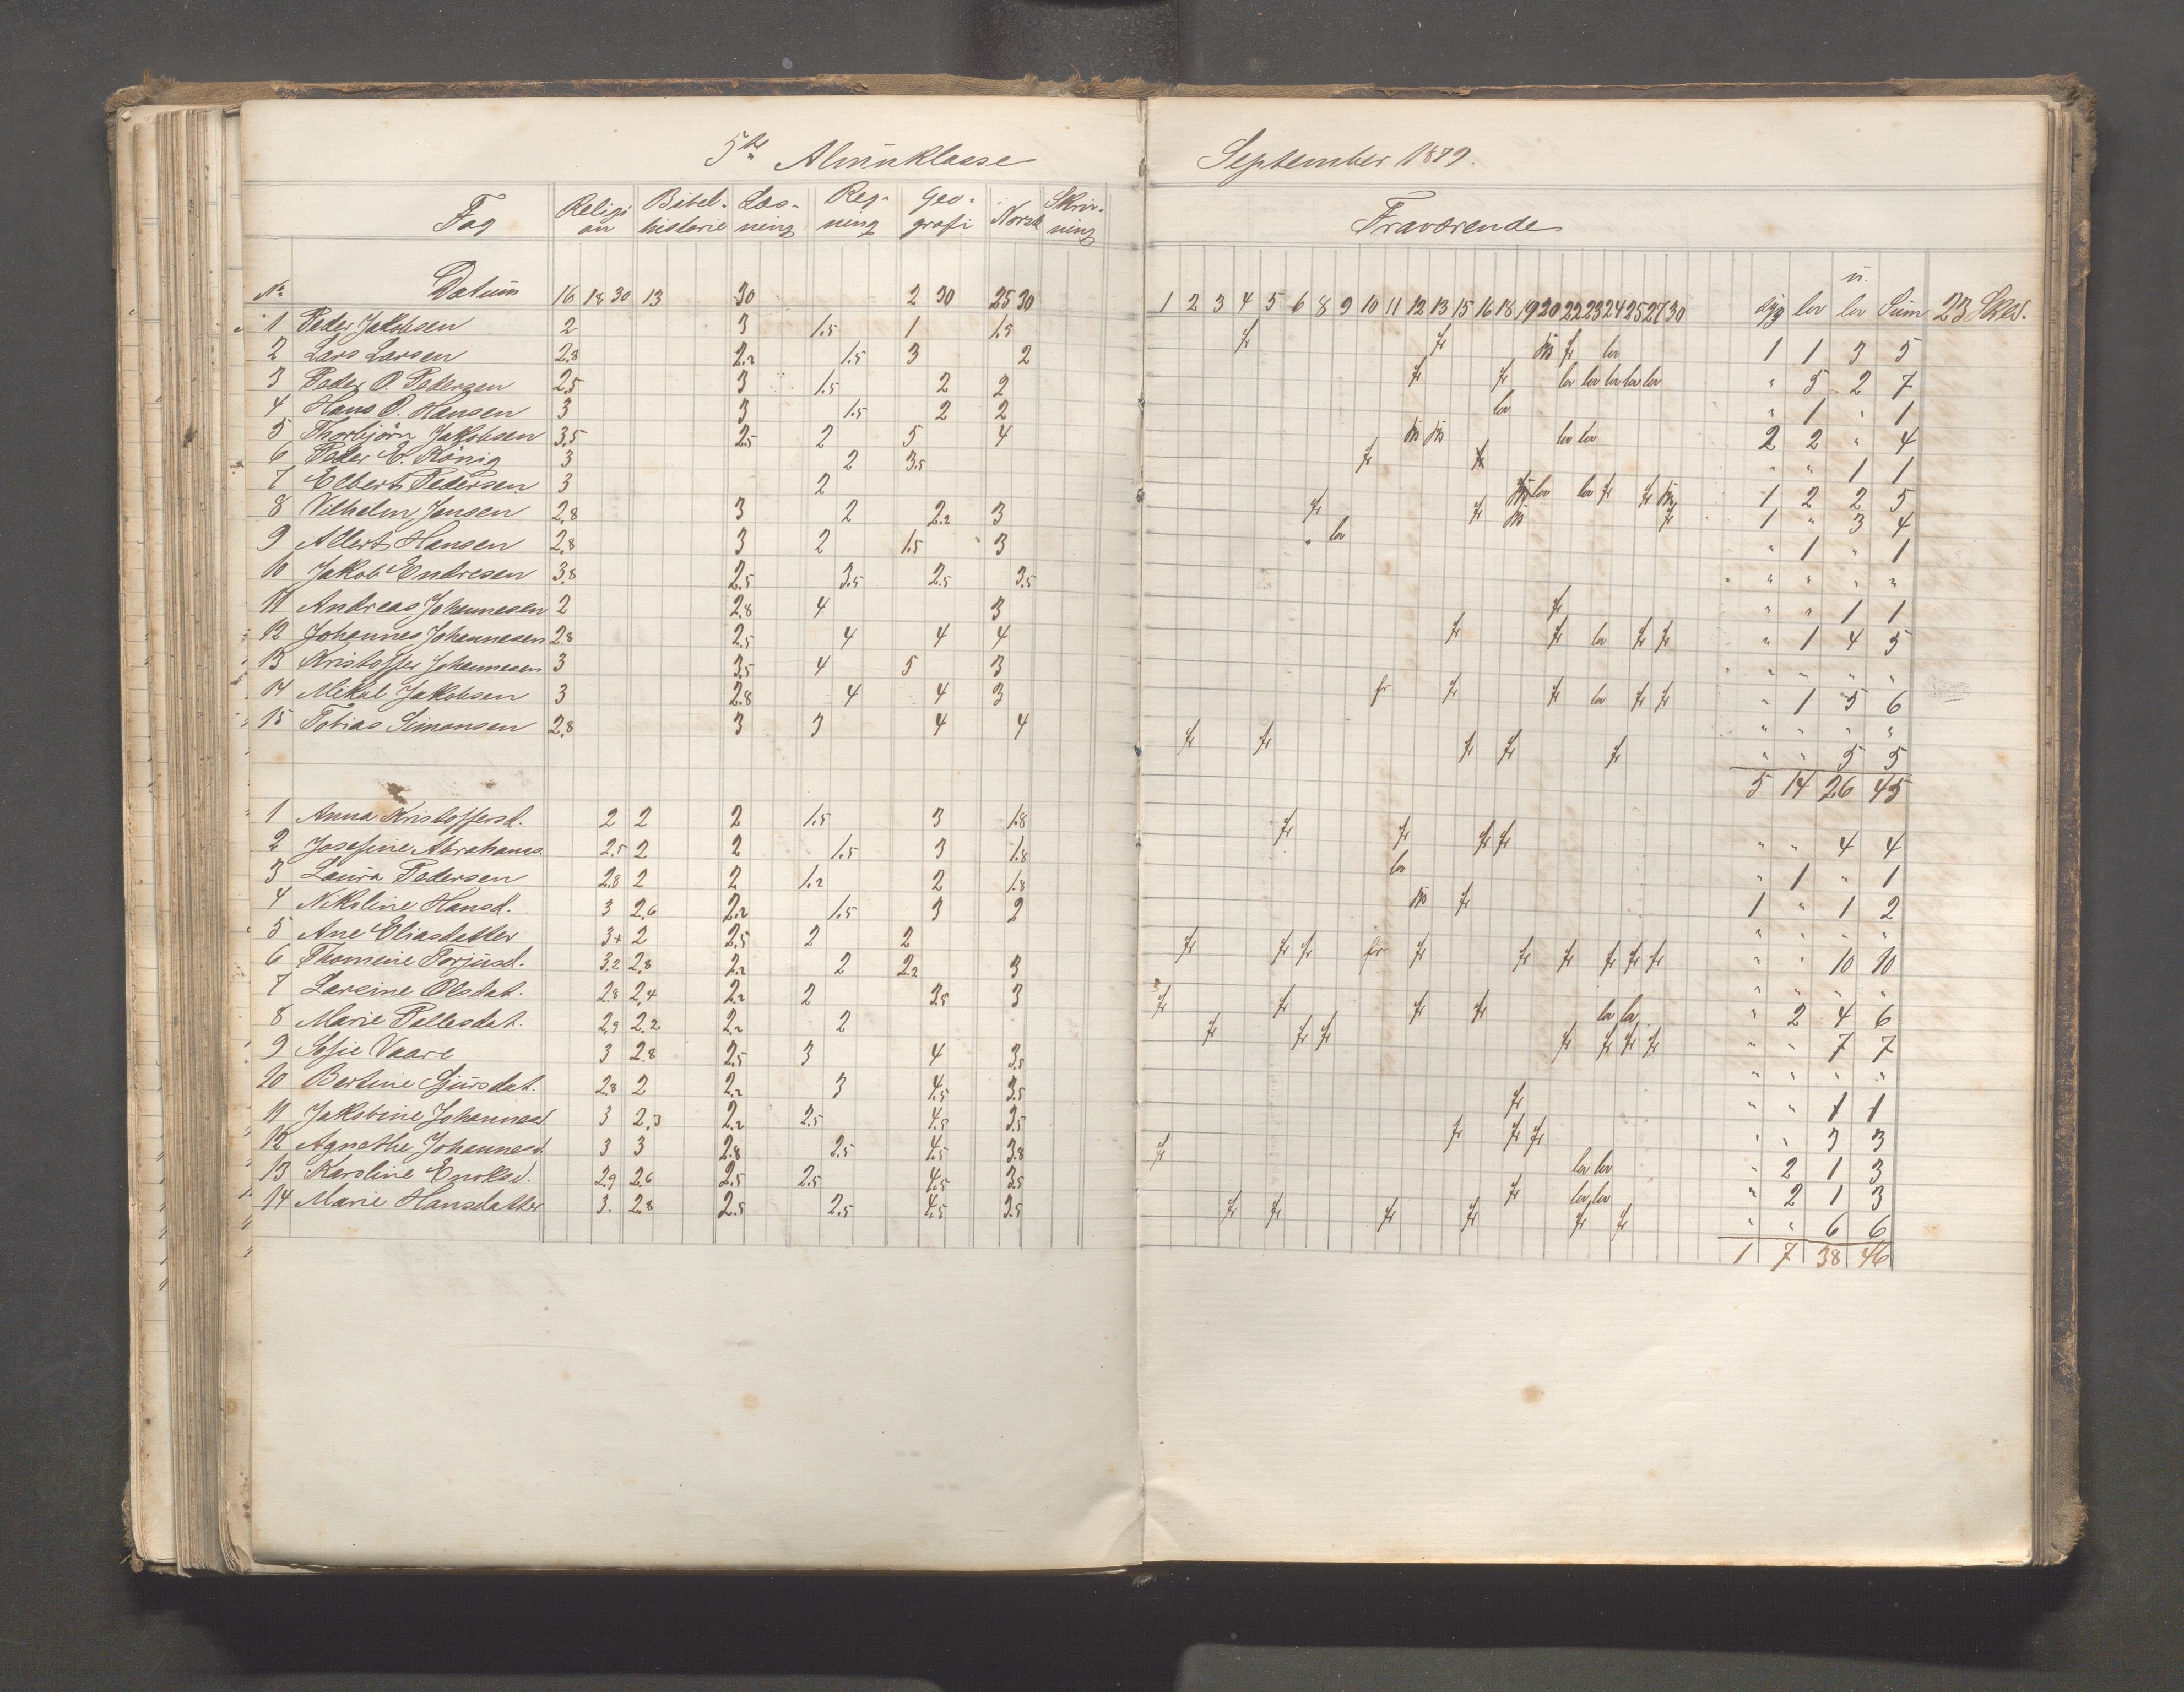 5te Almúnklasse
Fag Religion Bibelhistorie Læsning Regning Geografi Norsk Skrivning
No Datúm 16 18 30 13 30 2 30 25 30
1 Peder Jakobsen 2 3 1.5 1 1.5
2 Lars Larsen 2.8 2.2 1.5 3 2
3 Peder O. Pedersen 2.5 3 1.5 2 2
4 Hans O. Hansen 3 3 1.5 2 2
5 Thorbjörn Jakobsen 3.5 2.5 2 5 4
6 Peder E. König 3 2 3.5
7 Elbert Pedersen 3 2
8 Vilhelm Jensen 2.8 3 2 2.2 3
9 Allert Hansen 2.8 3 2 1.5 3
10 Jakob Endresen 3.8 2.5 3.5 2.5 3.5
11 Andreas Johannesen 2 2.8 4 3
12 Johannes Johannesen 2.8 2.5 4 4 4
13 Kristoffer Johannesen 3 3.5 4 5 3
14 Mikal Jakobsen 3 2.8 4 4 3
15 Tobias Simonsen 2.8 3 3 4 4
1 Anna Kristoffersd. 2 2 2 1.5 3 1.8
2 Josefine Abrahams. 2.5 2 2 1.5 3 1.8
3 Laúra Pedersen 2.8 2 2 1.2 2 1.8
4 Nikoline Hansd. 3 2.6 2.2 1.5 3 2
5 Ane Eliasdatter 3+ 2 2.5 2 2
6 Thomine Torjúsd. 3.2 2.8 2.2 2 2.2 3
7 Larsine Olsdat. 2.8 2.4 2.2 2 3.5 3
8 Marie Pallesdat. 2.9 2.2 2.2 2
9 Sofie Vaare 3 2.8 2.5 3 4 3.5
10 Bertine Sjúrsdat. 2.8 2 2.2 3 4.5 3.5
11 Jakobine Johannesd. 3 2.3 2.2 2.5 4.5 3.5
12 Agnethe Johannesd. 3 3 2.8 2.5 4.5 3.8
13 Karoline Enoksd. 2.9 2.6 2.5 2.5 4.5 3.5
14 Marie Hansdatter 3. 2.8 2.5 2.5 4.5 3.5
September 1879.
Fraværende
1 2 3 4 5 6 8 9 10 11 12 13 15 16 18 19 20 22 23 24 25 27 30 syg lov ú. lov Súm 23 Skd.
fr fr fr lov 1 1 3 5
fr fr lov lov lov lov lov " 5 2 7
lov " 1 " 1
lov lov 2 2 " 4
fr " " 1 1
lov lov fr fr 1 2 2 5
fr fr fr 1 " 3 4
lov " 1 " 1
" " " "
fr " " 1 1
fr fr lov fr fr " 1 4 5
" " " "
fr fr fr lov fr fr " 1 5 6
" " " "
fr fr fr fr fr " " 5 5
5 14 26 45
fr fr fr fr " " 4 4
lov " 1 " 1
fr 1 " 1 2
" " " "
fr fr fr fr fr fr fr fr fr fr " " 10 10
" " " "
fr fr fr fr lov lov " 2 4 6
fr fr fr fr fr fr fr " " 7 7
" " " "
fr " " 1 1
fr fr fr " " 3 3
fr lov lov " 2 1 3
fr lov lov " 2 1 3
fr fr fr fr fr fr " " 6 6
1 7 38 46